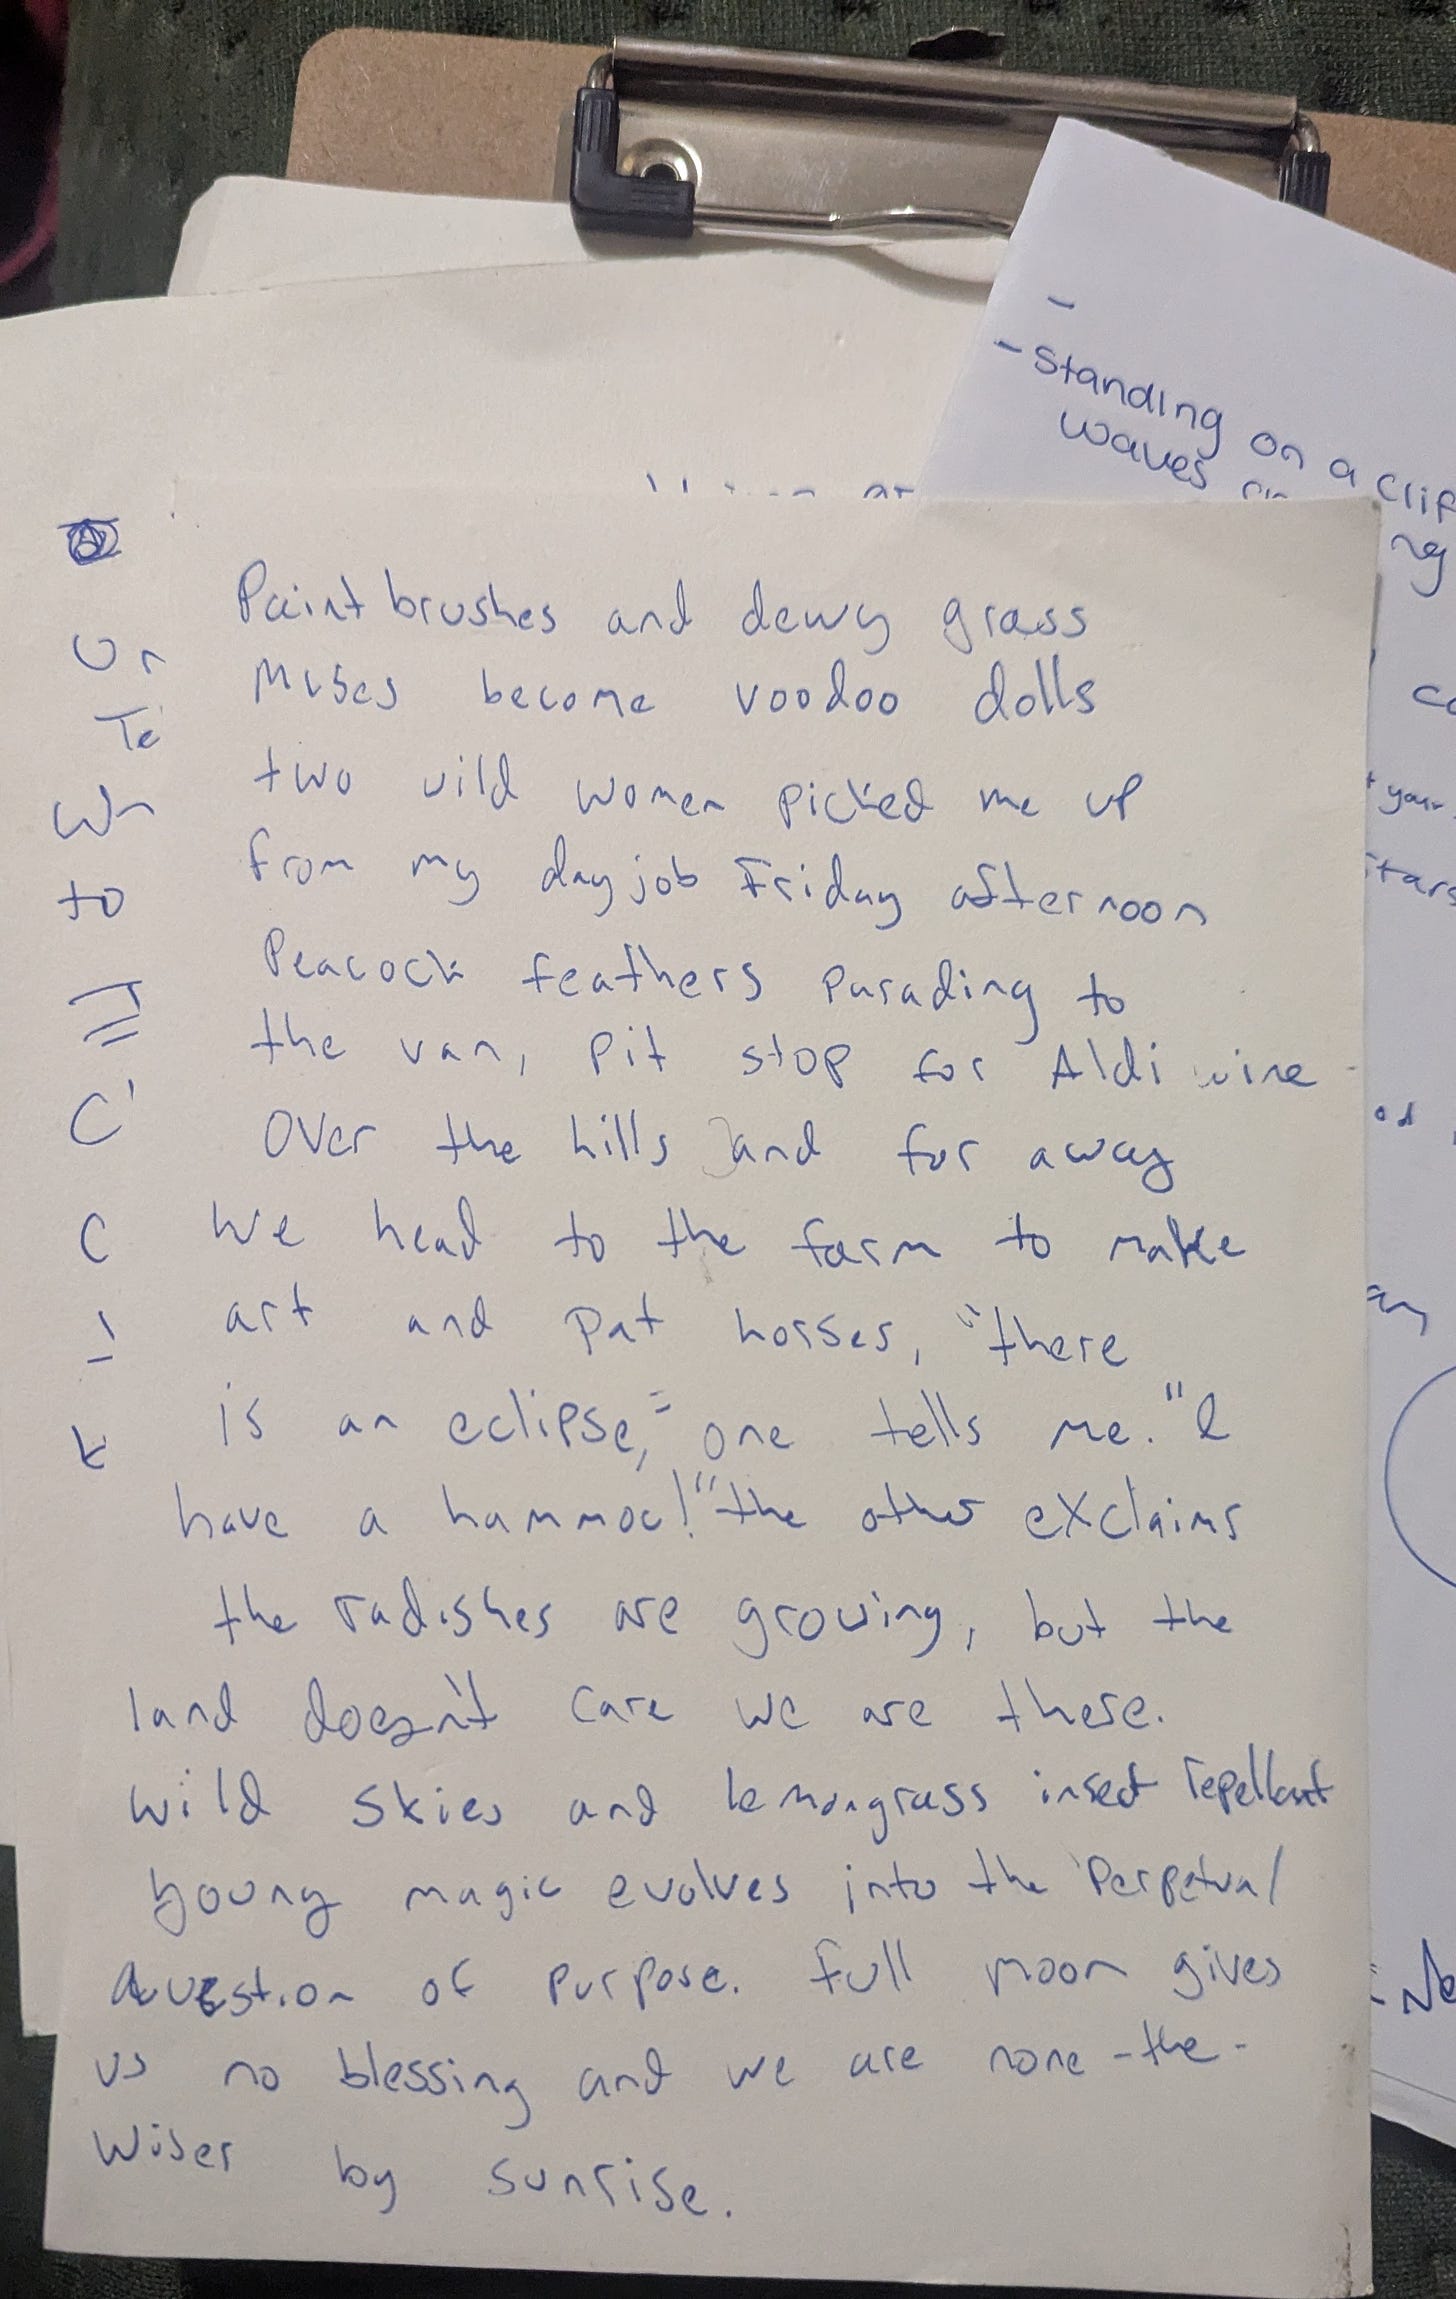 - Standing on a clif
waves
Paint brushes and dewy grass
Muses become voodoo dolls
two wild women picked me up
from my day job Friday afternoon
Peacock feathers parading to
the van, pit stop for Aldi wine
over the hills and far away
We head to the farm to make
art and pat horses, "there
is an eclipse," one tells me. "I
have a hammoc!" the other exclaims
the radishes are growing, but the
land doesn't care we are there.
wild skies and lemongrass insect repellant
young magic evolves into the perpetual
question of purpose. Full moon gives
us no blessing and we are none-the-
wiser by sunrise.